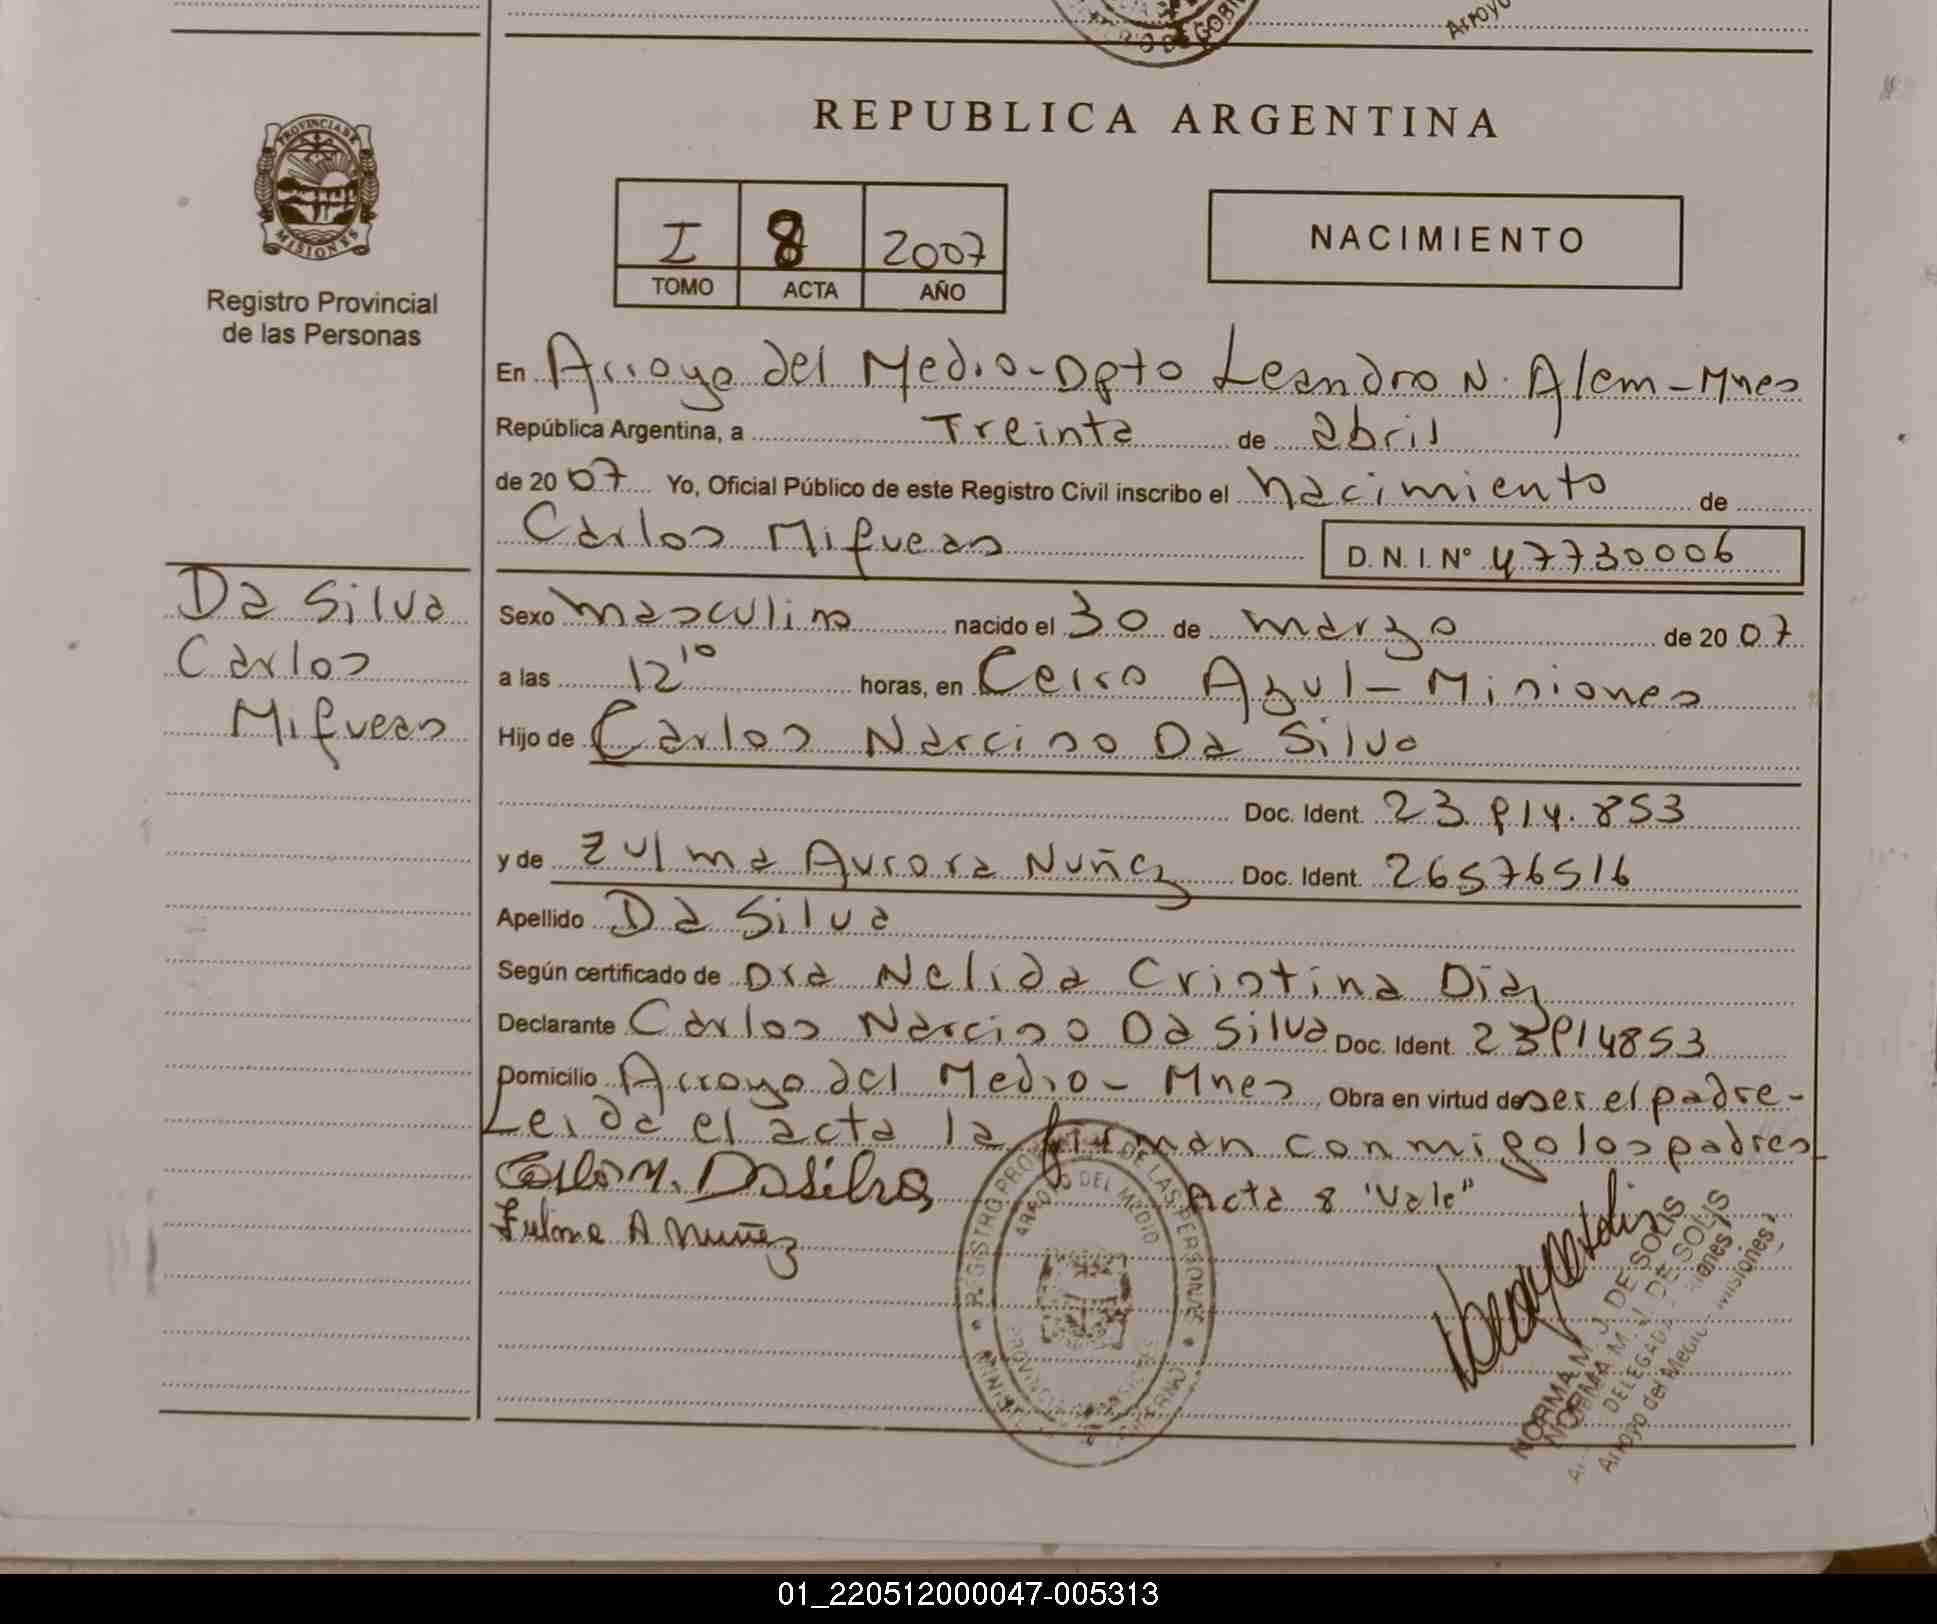 Arroyo
REPUBLICA ARGENTINA
PROVINCIA DE
MISIONES
Registro Provincial
de las Personas
I 8 2007
TOMO ACTA AÑO
NACIMIENTO
En Arroyo del Medio-Dpto Leandro N. Alem-Mnes
República Argentina, a Treinta de abril
de 20 07 Yo, Oficial Público de este Registro Civil inscribo el nacimiento de
Carlos Miqueas D. N. I. Nº 47730006
Da Silva
Carlos
Miqueas
Sexo masculino nacido el 30 de marzo de 20 07
a las 12 10 horas, en Cerro Azul-Misiones
Hijo de Carlos Narciso Da Silva
Doc. Ident. 23.914.853
y de Zulma Aurora Nuñez Doc. Ident. 26576516
Apellido Da Silva
Según certificado de Dra Nelida Cristina Diaz
Declarante Carlos Narciso Da Silva Doc. Ident. 23914853
Domicilio Arroyo del Medio- Mnes Obra en virtud de ser el padre-
Leida el acta la firman conmigo los padres
Carlos N. Da Silva
Acta 8 "Vale"
Zulma A Nuñez
REGISTRO PROVINCIAL DE LAS PERSONAS
ARROYO DEL MEDIO
NORMA M. J. DE SOLIS
NORMA M. J. DE SOLIS
DELEGADA
Arroyo del Medio - Misiones
01_220512000047-005313